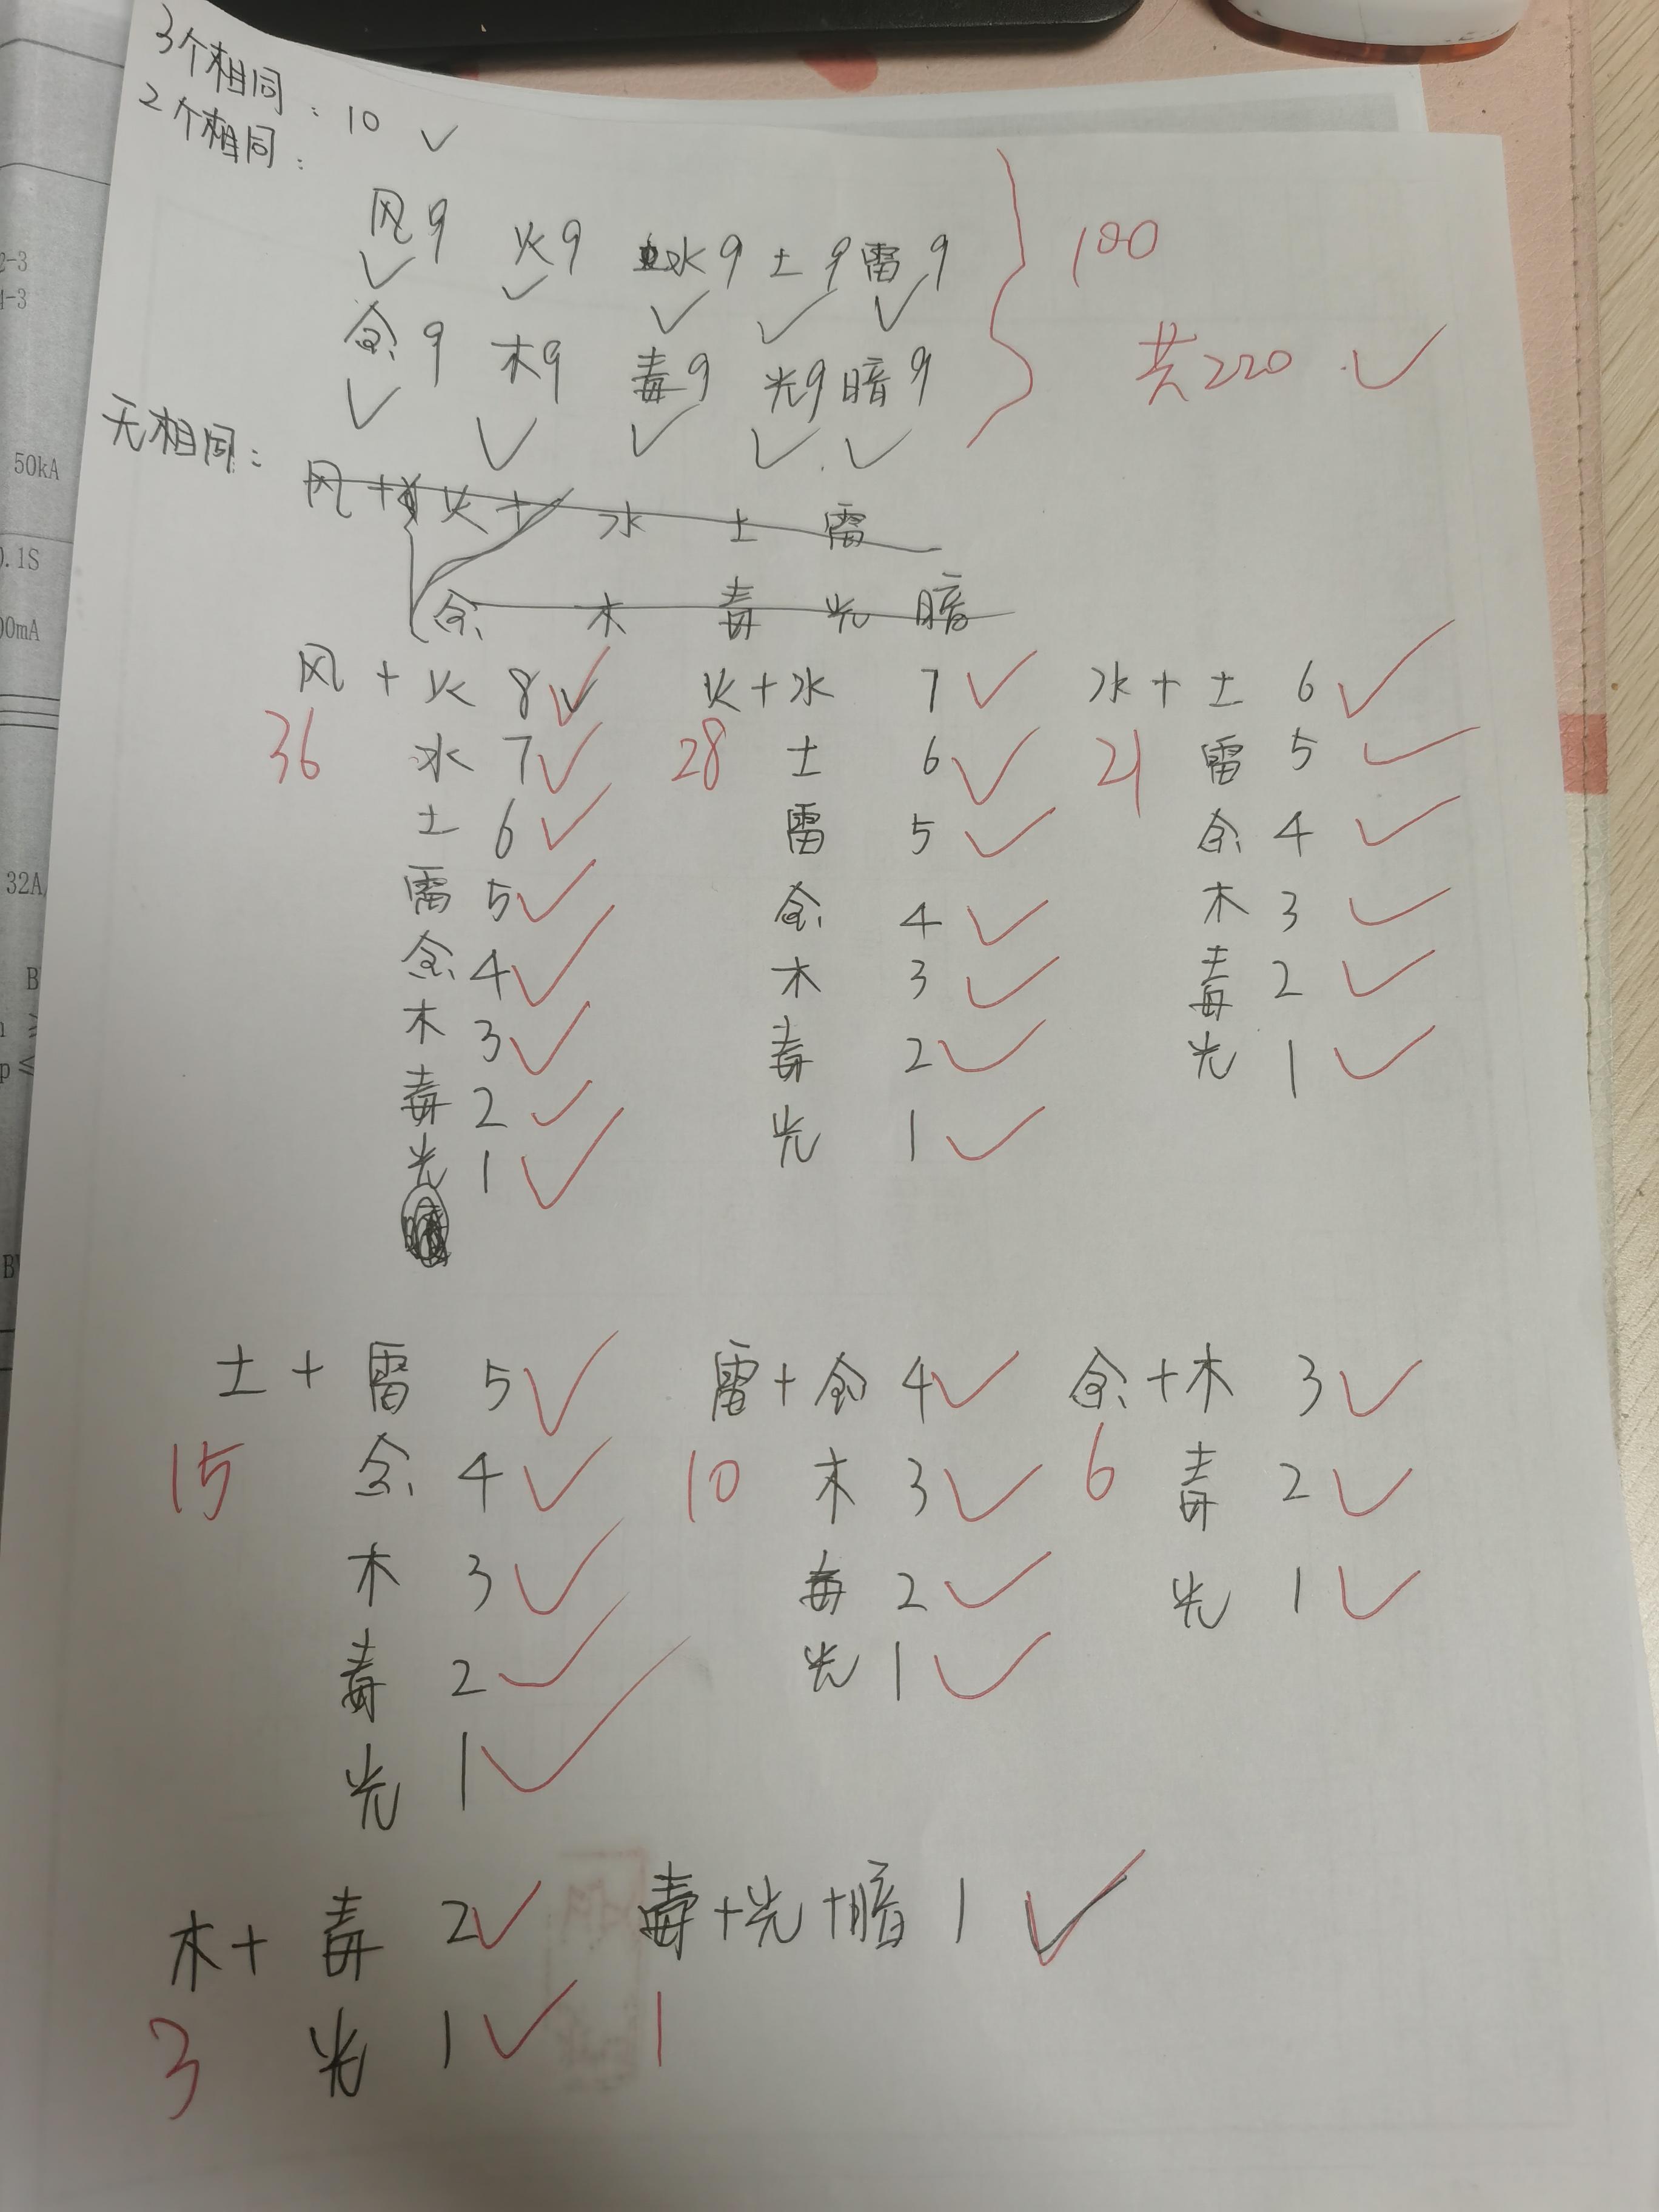 3个相同：10 ✓
2个相同：
风9 火9 水9 土9 雷9
金9 木9 毒9 光9 暗9
100
共220 ✓
无相同：
风+火+ 水 土 雷
金 木 毒 光 暗
风+火 8 ✓
36 水 7 ✓
土 6 ✓
雷 5 ✓
金 4 ✓
木 3 ✓
毒 2 ✓
光 1 ✓
火+水 7 ✓
28 土 6 ✓
雷 5 ✓
金 4 ✓
木 3 ✓
毒 2 ✓
光 1 ✓
水+土 6 ✓
21 雷 5 ✓
金 4 ✓
木 3 ✓
毒 2 ✓
光 1 ✓
土+雷 5 ✓
15 金 4 ✓
木 3 ✓
毒 2 ✓
光 1 ✓
雷+金 4 ✓
10 木 3 ✓
毒 2 ✓
光 1 ✓
金+木 3 ✓
6 毒 2 ✓
光 1 ✓
木+毒 2 ✓
3 光 1 ✓
毒+光+暗 1 ✓
1
50kA
0.1S
32A